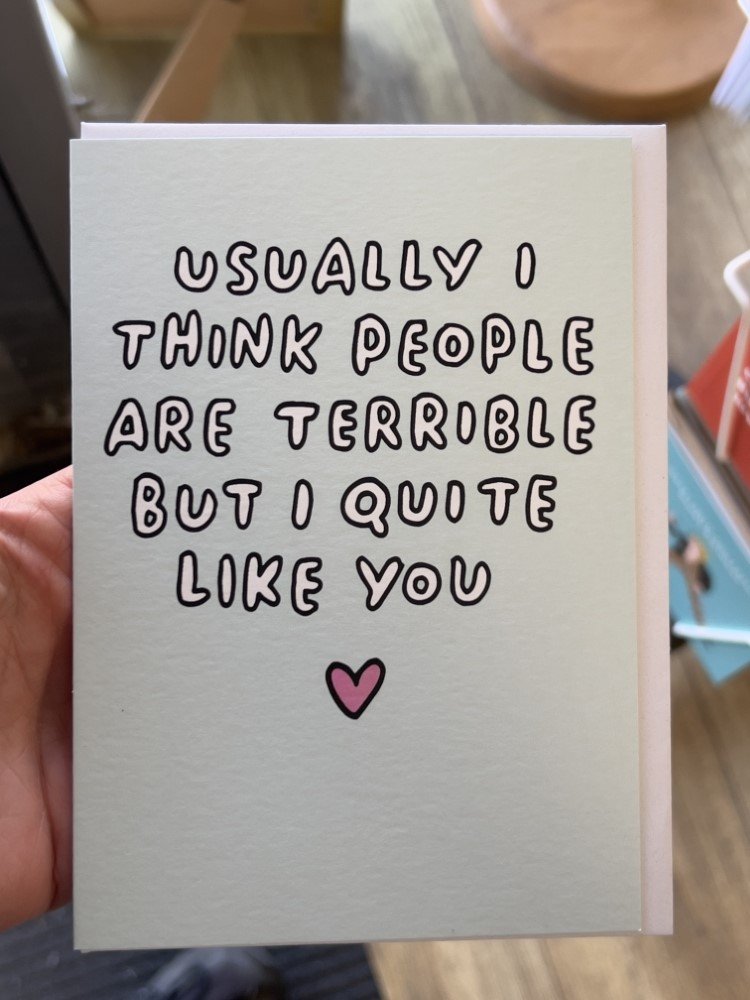 USUALLY I
THINK PEOPLE
ARE TERRIBLE
BUT I QUITE
LIKE YOU